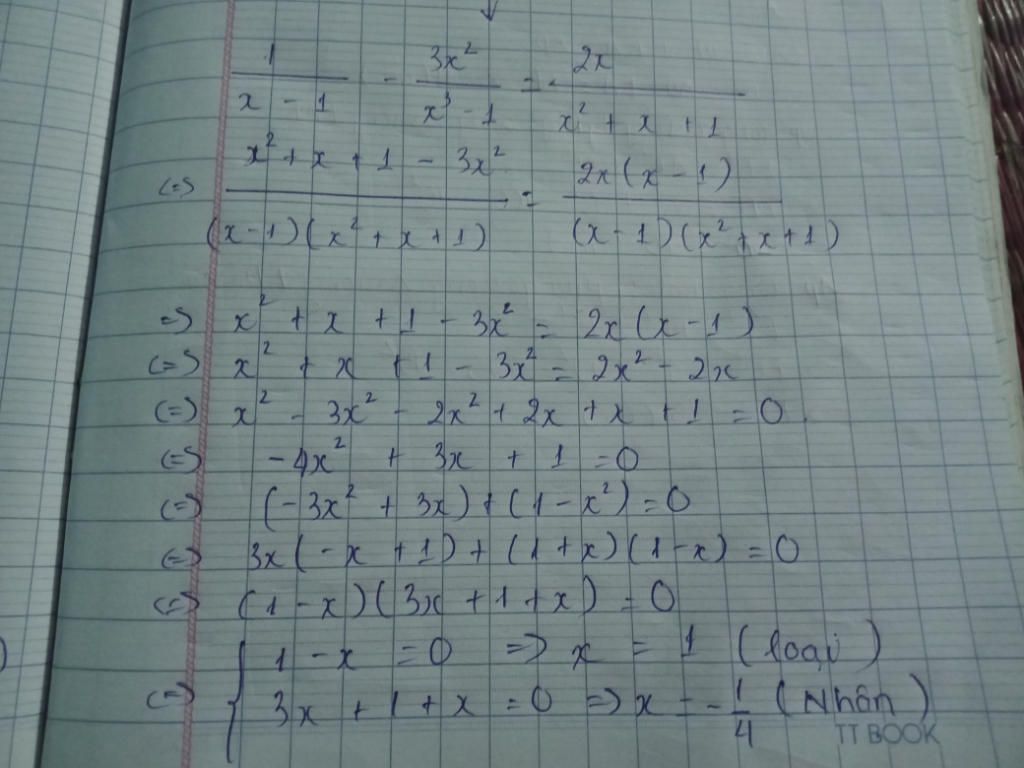 1/(x - 1) - 3x²/(x³ - 1) = 2x/(x² + x + 1)
(=) (x² + x + 1 - 3x²)/((x - 1)(x² + x + 1)) = 2x(x - 1)/((x - 1)(x² + x + 1))
=) x² + x + 1 - 3x² = 2x(x - 1)
(=) x² + x + 1 - 3x² = 2x² - 2x
(=) x² - 3x² - 2x² + 2x + x + 1 = 0
(=) -4x² + 3x + 1 = 0
(=) (-3x² + 3x) + (1 - x²) = 0
(=) 3x(-x + 1) + (1 + x)(1 - x) = 0
(=) (1 - x)(3x + 1 + x) = 0
(=) { 1 - x = 0 => x = 1 (loại)
3x + 1 + x = 0 => x = -1/4 (Nhân)
TT BOOK